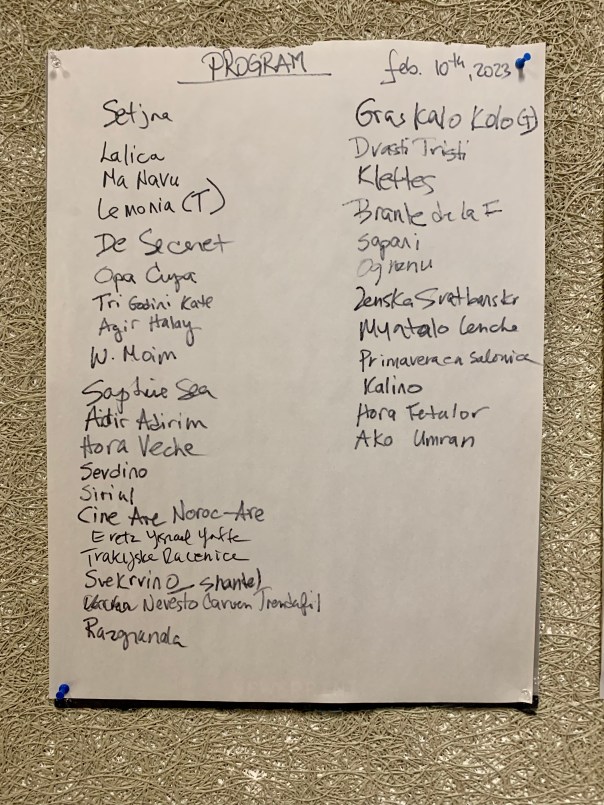 PROGRAM
feb. 10th, 2023
Setjna
Lalica
Ma Navu
Lemonia (T)
De Secenet
Opa Cupa
Tri Godini Kate
Agir Halay
W. Moim
Sapphire Sea
Adir Adirim
Hora Veche
Sevdino
Siriul
Cine Are Noroc-Are
Eretz Ysrael Yaffe
Trakijske Racenice
Svekrvino Shantel
Nevesto Carven Trendafil
Razgranda
Gras Kalo Kolo (T)
Dvasti Tristi
Klettes
Branle de la F
Sapari
Ogrenu
Zenska Svatbarska
Myatalo Lenche
Primavera en Salonica
Kalino
Hora Fetalor
Ako Umram